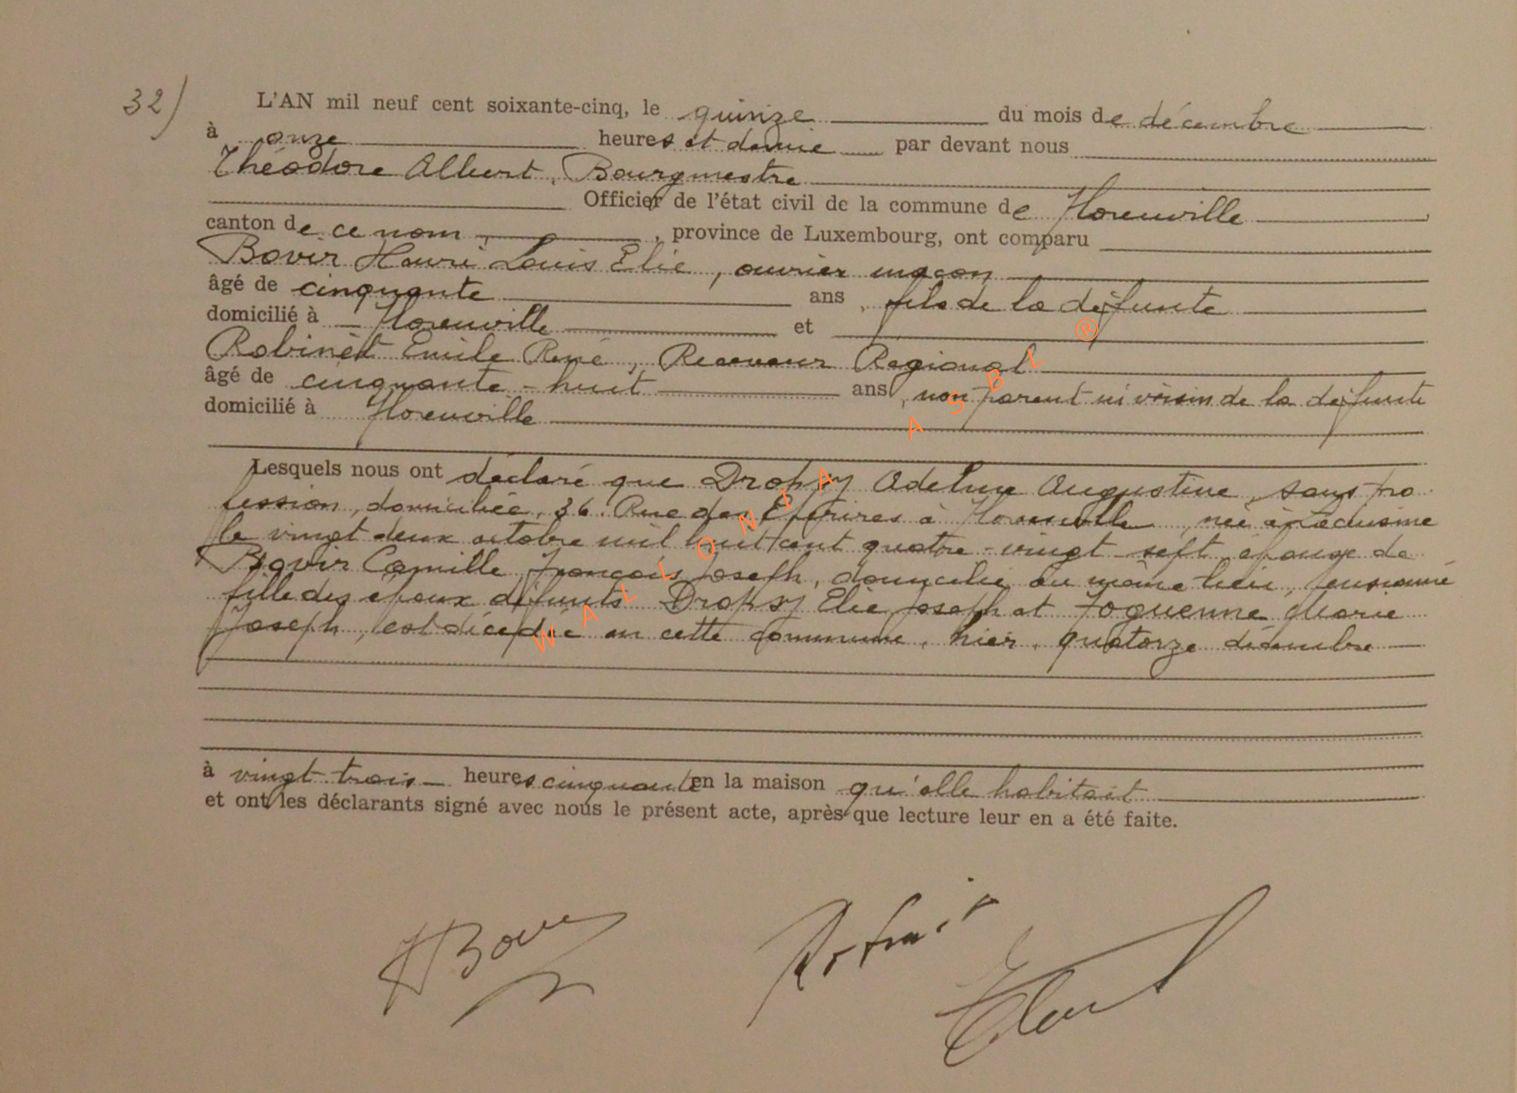 32)
L'AN mil neuf cent soixante-cinq, le quinze du mois de décembre
à onze heures et demie par devant nous
Théodore Albert, Bourgmestre
Officier de l'état civil de la commune de Florenville
canton de ce nom, province de Luxembourg, ont comparu
Bovir Henri Louis Elie, ouvrier maçon
âgé de cinquante ans, fils de la défunte
domicilié à Florenville et
Robinet Emile René, Receveur Régional
âgé de cinquante-huit ans, non parent ni voisin de la défunte
domicilié à Florenville
Lesquels nous ont déclaré que Droksy Adeline Augustine, sans pro
fession, domiciliée, 36. Rue des à Florenville, née à
le vingt deux octobre mil huit cent quatre-vingt-sept, épouse de
Bovir Camille François Joseph, domicilié au même lieu, pensionné
fille des époux défunts Droksy Elie Joseph et Foguenne Marie
Joseph, est décédée en cette commune, hier, quatorze décembre
à vingt trois heures cinquante en la maison qu'elle habitait
et ont les déclarants signé avec nous le présent acte, après que lecture leur en a été faite.
HBovir
WALLONIA ASBL ®